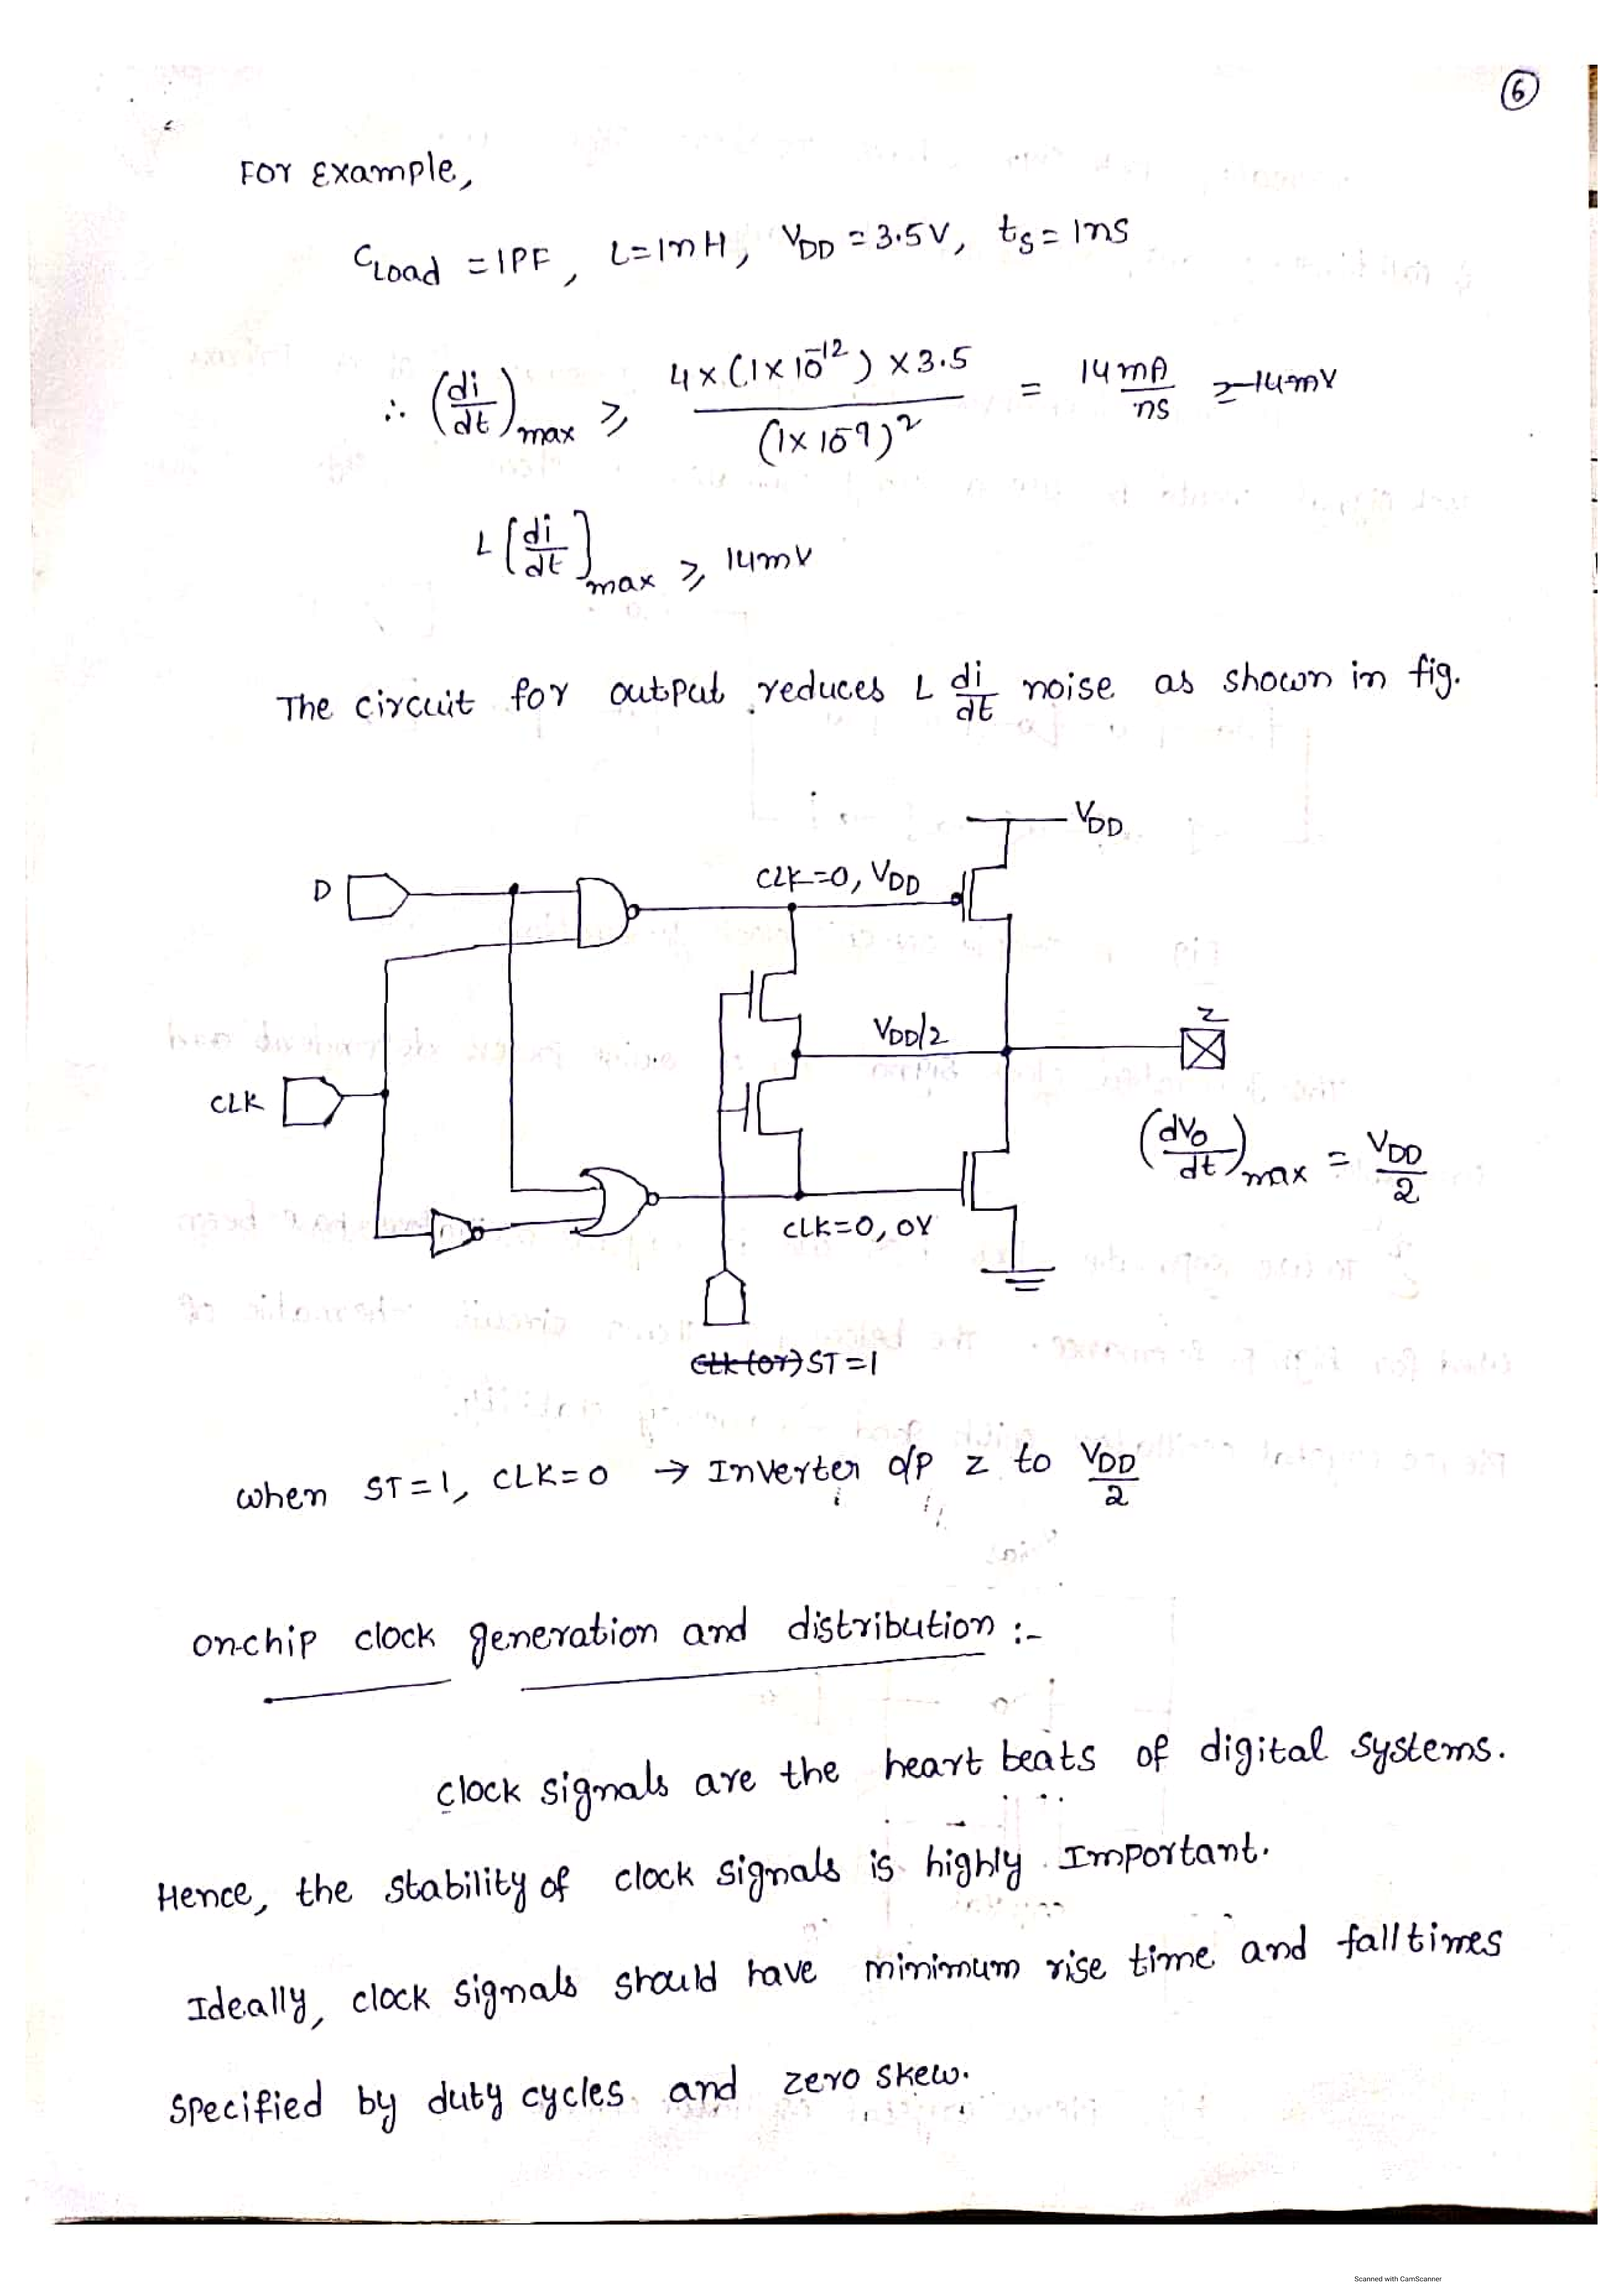 6
For Example,
CLoad = 1PF, L=1nH, VDD = 3.5V, ts = 1ns
∴ (di/dt)max ≥ 4×(1×10^-12)×3.5 / (1×10^-9)^2 = 14 mA/ns
L[di/dt]max ≥ 14mV
The circuit for output reduces L di/dt noise as shown in fig.
VDD
D
CLK=0, VDD
VDD/2
Z
CLK
(dVo/dt)max = VDD/2
CLK=0, 0V
Clk (or) ST=1
when ST=1, CLK=0 → Inverter o/p z to VDD/2
on-chip clock generation and distribution :-
clock signals are the heart beats of digital systems.
Hence, the stability of clock signals is highly Important.
Ideally, clock signals should have minimum rise time and fall times
specified by duty cycles and zero skew.
Scanned with CamScanner